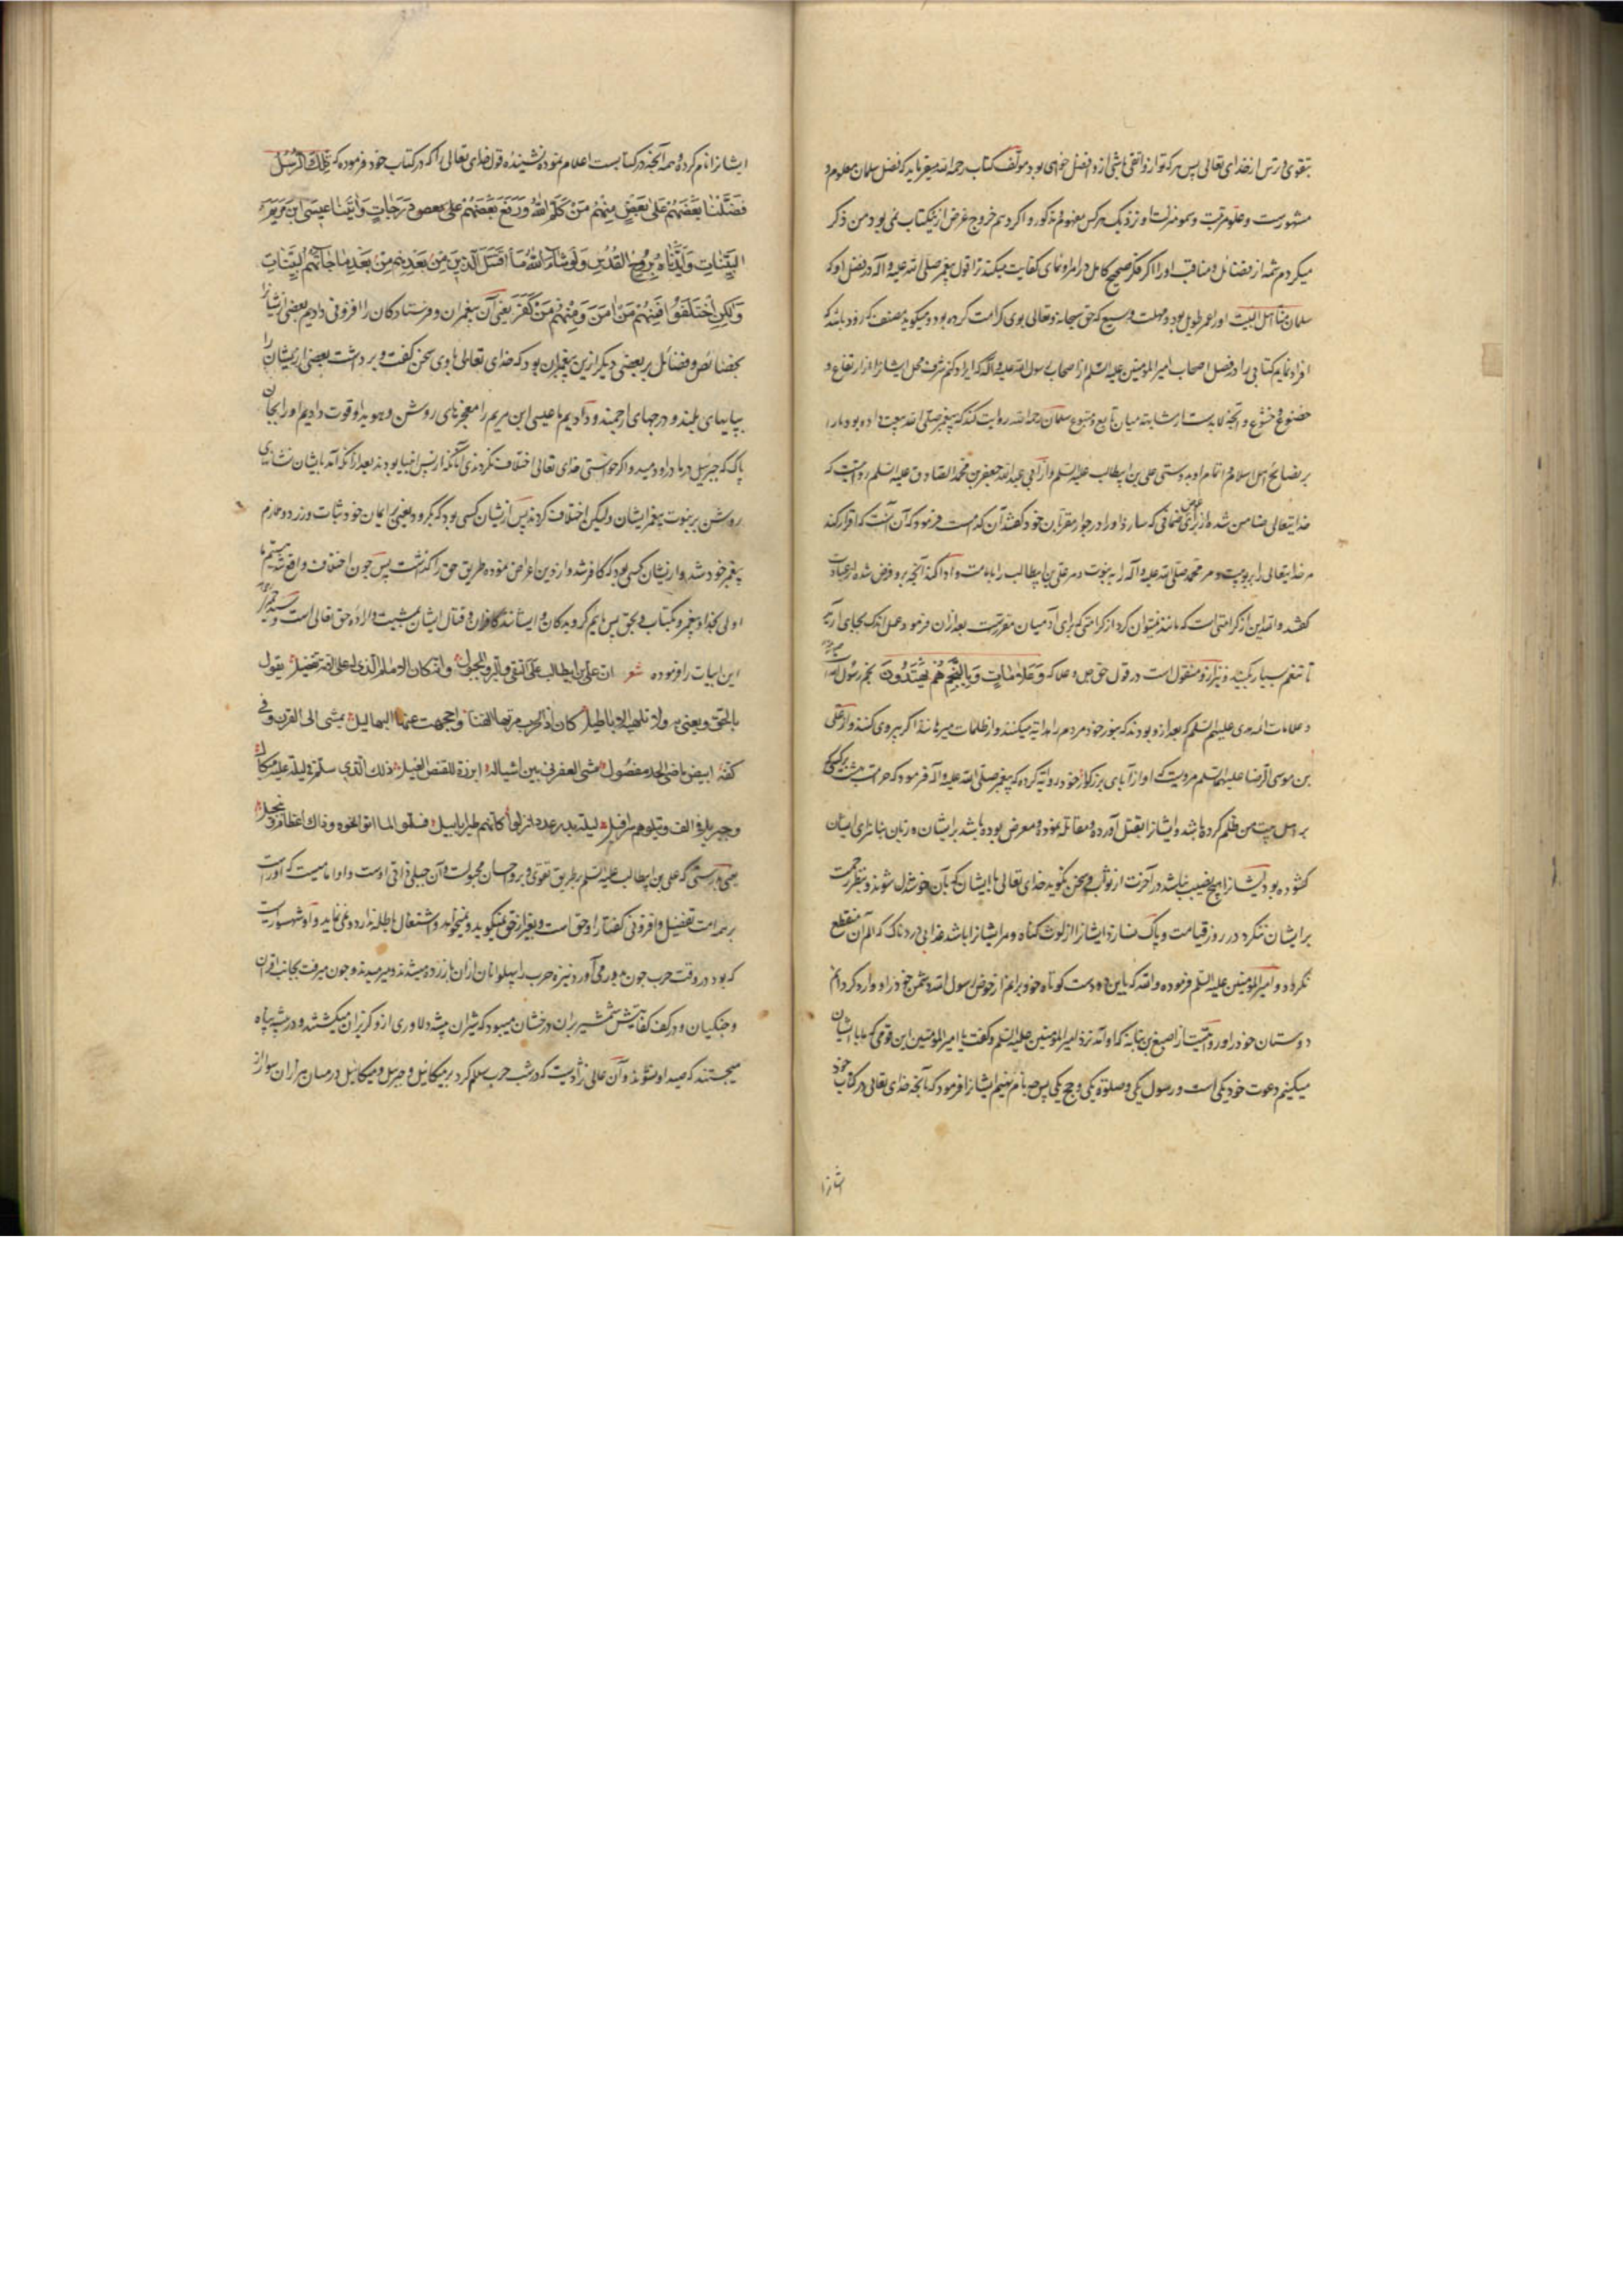 بتقوی و ترس از خدای تعالی پس هر که تو از و اتقی باشی ازو افضل خواهی بود مولف کتاب رحمه الله میفرماید که فضل سلمان معلوم و
مشهورست و علو مرتبت و سمو منزلت او نزدیک هر کس مفهوم و مذکور و اکر د بیم خروج غرض ازینکتاب نمی بود من ذکر
میکردم شمه از فضائل و مناقب او را اکر فکر صحیح کامل در امر او نمای کفایت میکند ترا قول پیغمبر صلی الله علیه و آله در فضل او که
سلمان منا اهل البیت او را عمر طویل بود و مهلت وسیع که حق سبحانه و تعالی بوی کرامت کرده بود و میکوید مصنف که زود باشد که
افراد نمایم کتابی را در فضل اصحاب امیر المؤمنین علیه السلم از اصحاب رسول الله صلی الله علیه و آله که ایراد کنم شرف محل ایشانرا از ارتفاع و
خضوع و خشوع و آنچه لابدست از مشابهته میان تابع و متبوع سلمان رحمه الله روایت کند که پیغمبر صلی الله بیعت داده بود ما را
بر نصایح اهل اسلام و اتمام او بدوستی علی بن ابیطالب علیه السلم و از ابی عبد الله جعفر بن محمد الصادق علیه السلم روایتست که
خدایتعالی ضامن شده از برای مؤمن ضمانی که سازد او را در جوار مقربان خود کفتند آن کدامست فرمود که آن آنست که اقرار کند
مر خدایتعالی را بربوبیت و مر محمد صلی الله علیه و آله را به نبوت و مر علی بن ابیطالب را بامامت و ادا کند آنچه برو فرض شده از عبادات
کفتند والله این از کرامتی است که مانند نمیتوان کرد از کرامتی که برای آدمیان مقررست بعد ازان فرمود عمل اندک بجای آرید
تا تنعم بسیار یابید و نیز ازو منقول است در قول حق جل و علا که وَعَلَامَاتٍ وَبِالنَّجْمِ هُمْ يَهْتَدُونَ نجم رسول الله
و علامات ائمه هدی علیهم السلم که بعد ازو بودند که بنور خود مردم را هدایه میکنند و از ظلمات میرهانند اکر پیروی کنند و از علی
بن موسی الرضا علیهما السلم مرویت که او از آبای بزرکوار خود روایه کرده که پیغمبر صلی الله علیه و آله فرمود که حرامست بهشت بر کسی که
بر اهل بیت من ظلم کرده باشد و ایشانرا بقتل آورده و مقاتله نموده و معرض بوده باشد بر ایشان و زبان بناسزای ایشان
کشوده بود ایشانرا هیچ نصیب نباشد در آخرت از ثواب و سخن نکوید خدای تعالی با ایشان که بآن خوشدل شوند و بنظر رحمت
بر ایشان ننکرد در روز قیامت و پاک نسازد ایشانرا از لوث کناه و مر ایشانرا باشد عذابی دردناک که الم آن منقطع
نکردد و امیر المؤمنین علیه السلم فرموده والله که باین دو دست کوتاه خود برانم از حوض رسول الله دشمن خود را و وارد کردانم
دوستان خود را و روایتست از اصبغ بن نباته که او آمد نزد امیر المؤمنین علیه السلم و کفت یا امیر المؤمنین این قومی که ما با ایشان
میکنیم دعوت خود یکی است و رسول یکی و صلوة یکی و حج یکی پس چه نام نهیم ایشانرا فرمود که بآنچه خدای تعالی در کتاب خود
ایشانرا
ایشانرا نام کرده همه آنچه در کتابست اعلام نموده نشنیده قول خدای تعالی را که در کتاب خود فرموده که تِلْكَ الرُّسُلُ
فَضَّلْنَا بَعْضَهُمْ عَلَى بَعْضٍ مِنْهُمْ مَنْ كَلَّمَ اللهُ وَرَفَعَ بَعْضَهُمْ دَرَجَاتٍ وَآتَيْنَا عِيسَى ابْنَ مَرْيَمَ
الْبَيِّنَاتِ وَأَيَّدْنَاهُ بِرُوحِ الْقُدُسِ وَلَوْ شَاءَ اللهُ مَا اقْتَتَلَ الَّذِينَ مِنْ بَعْدِهِمْ مِنْ بَعْدِ مَا جَاءَتْهُمُ الْبَيِّنَاتُ
وَلَكِنِ اخْتَلَفُوا فَمِنْهُمْ مَنْ آمَنَ وَمِنْهُمْ مَنْ كَفَرَ یعنی آن پیغمبران و فرستادکان را افزونی دادیم بعضی ایشانرا
بخصائص و فضائل بر بعضی دیکر ازین پیغمبران بود که خدای تعالی با وی سخن کفت و برداشت بعضی ازیشان را
بپایهای بلند و درجهای ارجمند و دادیم ما عیسی ابن مریم را معجزهای روشن و هویدا و قوت دادیم او را بجان
پاک که جبرئیل درو دمید و اکر خواستی خدای تعالی اختلاف نکردندی آنانکه از پس انبیا بودند بعد ازانکه آمد بایشان نشانهای
روشن بر نبوت پیغمبر ایشان ولیکن اختلاف کردند پس ازیشان کسی بود که بکروید یعنی بر ایمان خود ثبات ورزد
پیغمبر خود شد و ازیشان کسی بود که کافر شد و از دین اعراض نموده طریق حق را کذاشت پس چون اختلاف واقع شد
اولی بخدا و پیغمبر و بکتاب و بحق پس مائیم کرویدکان و ایشانند کافران و قتال ایشان بمشیت و اراده حق تعالی است و
این ابیات را فرموده شعر ان علی بن ابیطالب علی التقی و البر مجبول و انه کان الامام الذی له علی الامة تفضیل یقول
بالحق و یعنی به و لا تلهیه الاباطیل کان اذا الحرب مرتها القنا و احجمت عنها البهالیل یمشی الی القرن و فی
کفه ابیض ماضی الحد مصقول مشی العفرنی بین اشباله ابرزه للقنص الغیل ذلک الذی سلم فی لیلة علیه میکال
و جبریل فی الف و یتلوهم سرافیل لیلة بدر مددا انزلوا کانهم طیر ابابیل فسلموا لما اتوا نحوه و ذاک اعظام و تبجیل
یعنی بدرستی که علی بن ابیطالب علیه السلم بطریق تقوی و بر و احسان مجبولست و آن جبلی ذاتی اوست و او امامیست که او راست
بر همه امت تفضیل و افزونی کفتار او حق است و بغیر از حق نمیکوید و نمیخواهد و اشتغال باطله ندارد و نمی نماید و او شهسواریست
که بود در وقت حرب چون نیزه حرب را پهلوانان ازان باز زده میشدند و میرمیدند و چون میرفت بجانب اقران
و جنکیان و در کف کفایتش شمشیر بران درخشان میبود که شیران بیشه دلاوری ازو کریزان میکشتند و در بیشه پناه
میجستند که صید او نشوند و آن عالی نژادیست که در شب حرب سلام کرد برو میکائیل و جبرئیل و میکائیل در میان هزاران سوار از